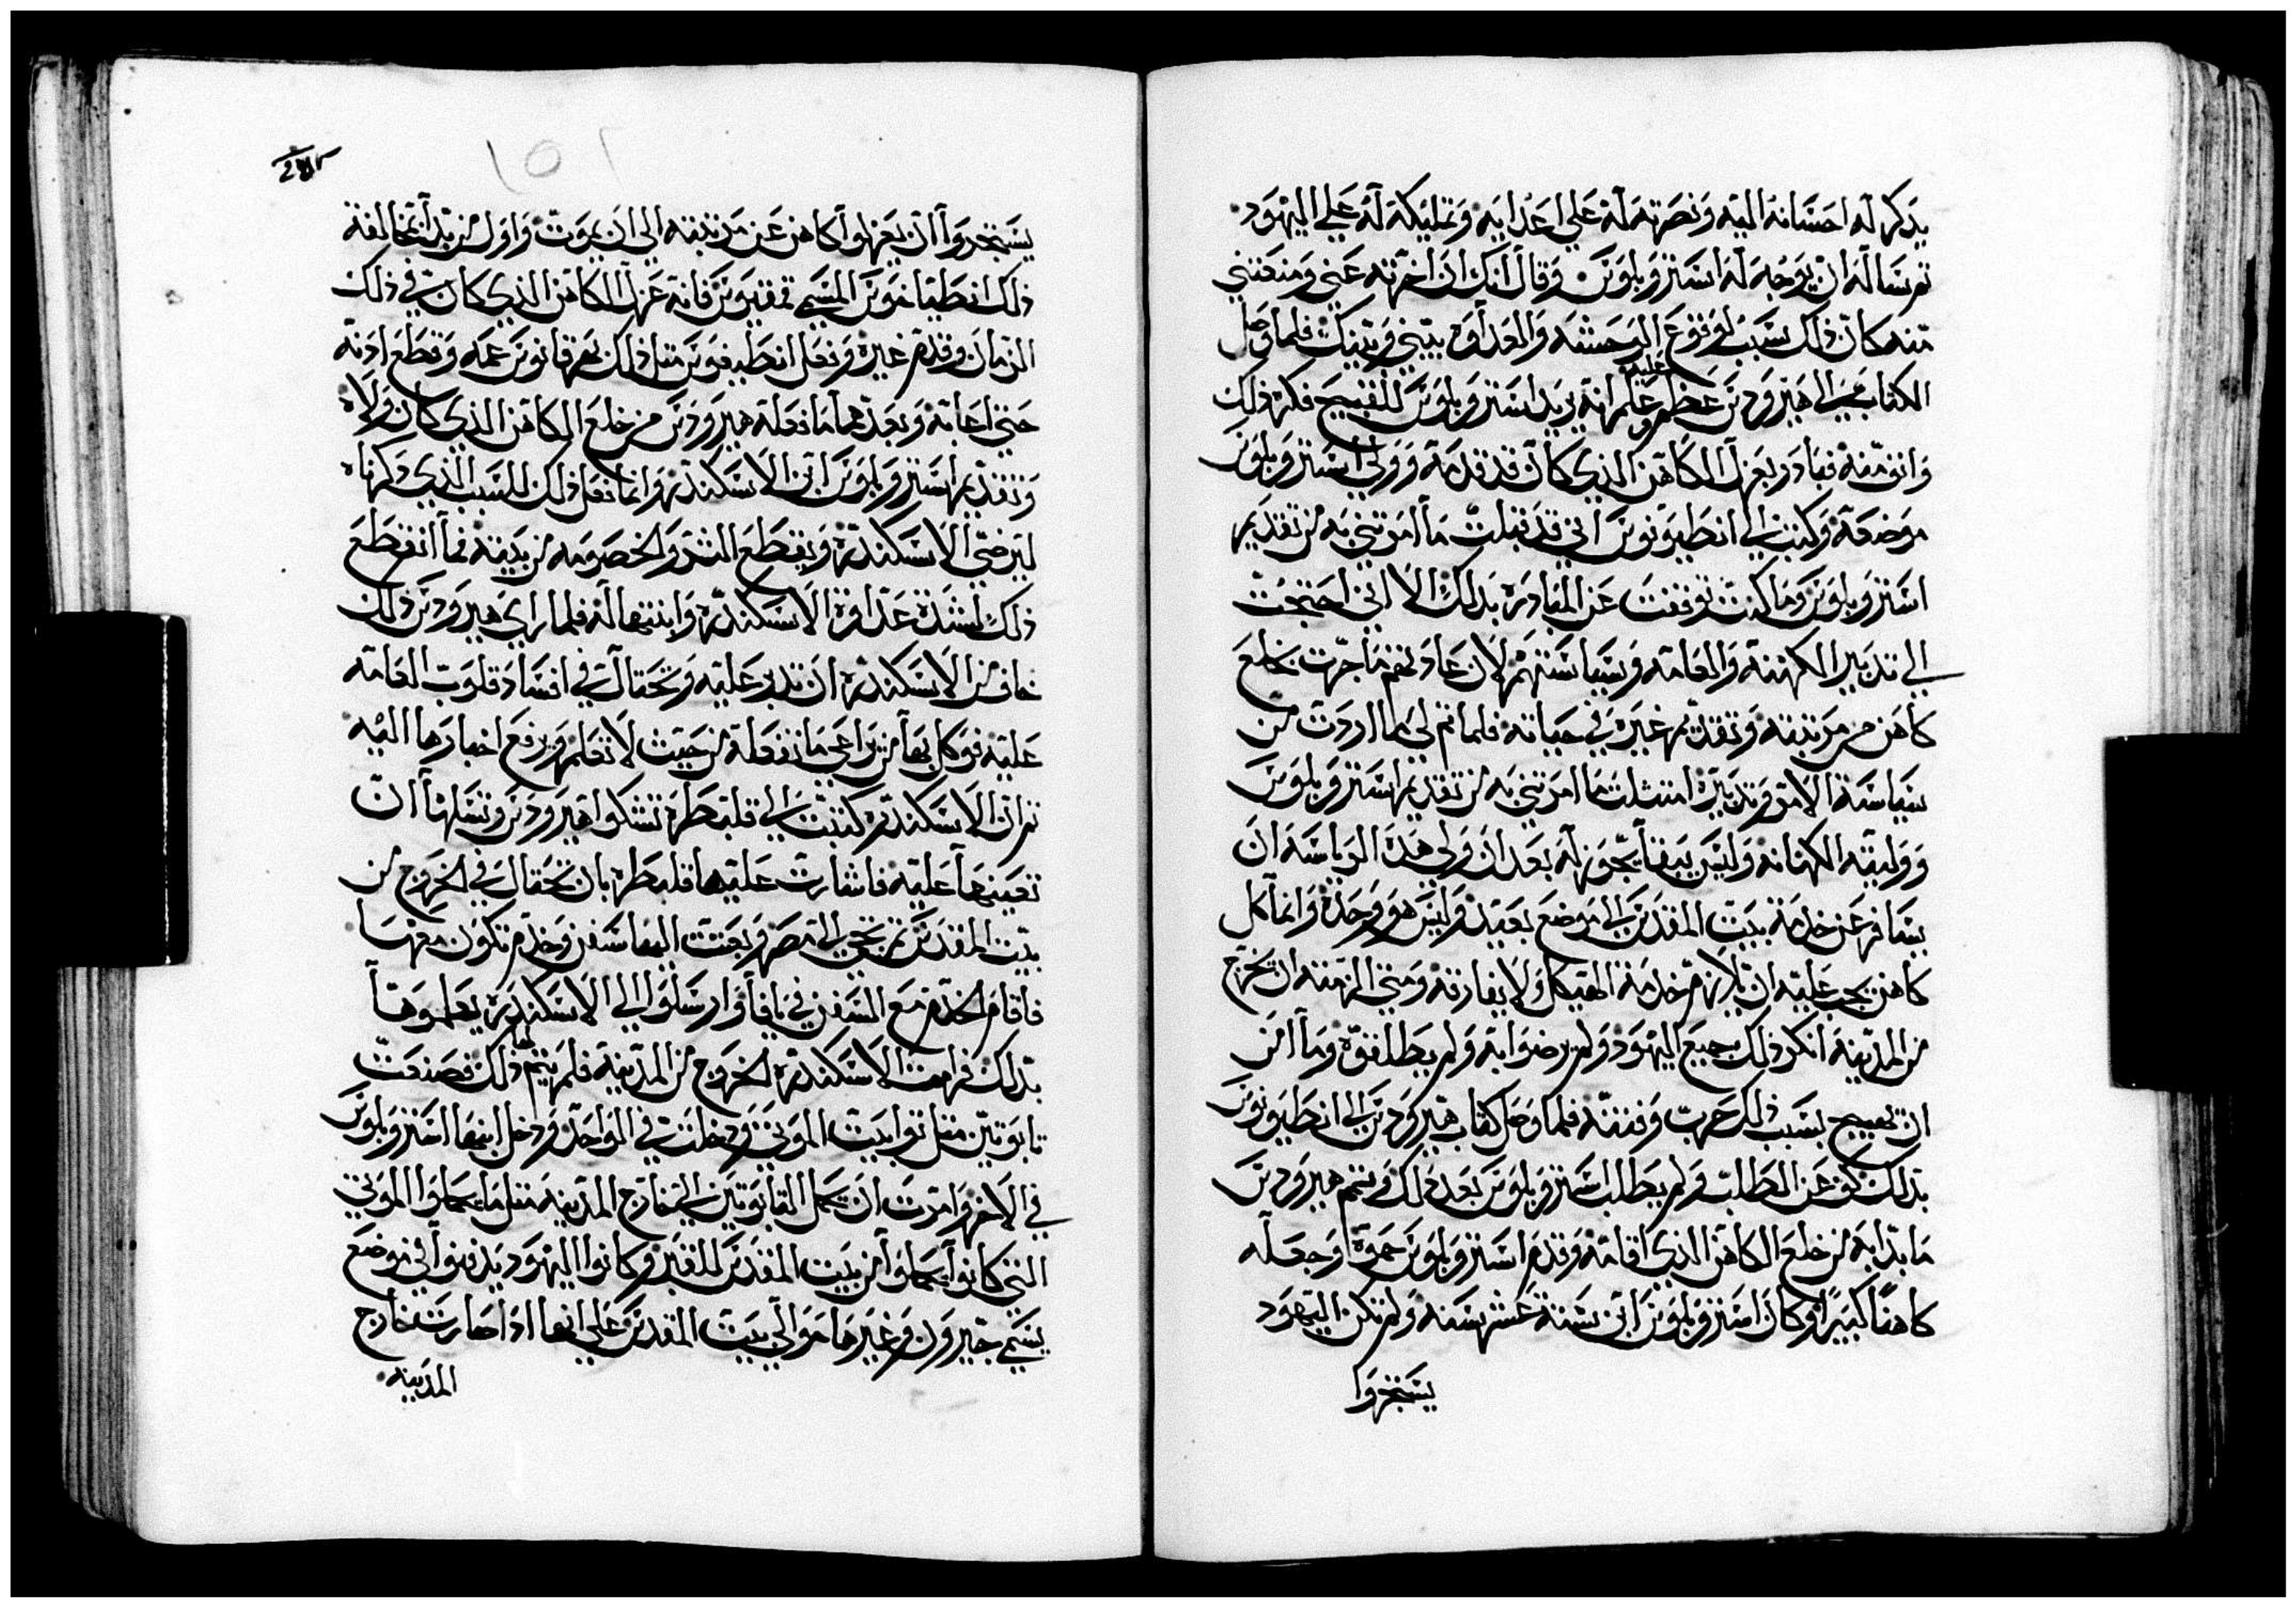 يذكر له احسانه اليه ونصرته له علي اعدايه وتمليكه له علي اليهود
ثم ساله ان يوجه له استروبلوس وقال انك ان اخرته عني ومنعتني
منه كان ذلك سبب لوقوع الوحشه والعداوه بيني وبينك فلما وصل
الكتاب الي هيرودس عظم عليه وعلم انه يريد استروبلوس للقبيح فكره ذلك
وانف منه فبادر بعزل الكاهن الذي كان قد قدمه وولي استروبلوس
موضعه وكتب الي انطيونوس اني قد قبلت ما امرتني به من تقديم
استروبلوس وما كنت توقفت عن المبادره بذلك الا اني احتجت
الي تدبير الكهنه والعامه وسياستهم لان عادتهم ما جرت بخلع
كاهن من مرتبته وتقديم غيره في حياته فلما تم لي ما اردت من
سياسة الامر وتدبيره امتثلت ما امرتني به من تقديم استروبلوس
ووليته الكهانه وليس يبقا يجوز له بعد ان ولي هذه الرياسه ان
يسافر عن خدمة بيت المقدس الي موضع بعيد وليس هو وحده وانما كل
كاهن يجب عليه ان يلازم خدمة الهيكل ولا يفارقه ومتي الزمته ان يخرج
من المدينه انكر ذلك جميع اليهود ولم يرضوا به ولم يطلقوه وما امن
ان يهيج بسبب ذلك حرب وفتنه فلما وصل كتاب هيرودس الي انطيونوس
بذلك كف عن الطلب ولم يطلب استروبلوس بعد ذلك وتمم هيرودس
ما بدا به من خلع الكاهن الذي اقامه وقدم استروبلوس حموه وجعله
كاهنا كبيرا وكان استروبلوس ابن ستة عشر سنه ولم تكن اليهود
يستجروا
يستجروا ان يعزلوا كاهن عن مرتبته الي ان يموت واول من بدا بمخالفة
ذلك انطياخوس المسمي فانه عزل الكاهن الذي كان في ذلك
الزمان وقدم غيره وفعل انطيغوس مثل ذلك بهرقانوس عمه وقطع اذنه
حتي اعابه وبعدهما ما فعله هيرودس من خلع الكاهن الذي كان ولاه
وتقديم استروبلوس ابن الاسكندره وانما فعل ذلك للسبب الذي ذكرناه
ليرضي الاسكندره ويقطع الشر والخصومه من بيته فما انقطع
ذلك لشدة عداوة الاسكندره وابنتها له فلما راي هيرودس ذلك
خاف من الاسكندره ان تدبر عليه وتحتال في افساد قلوب العامه
عليه فوكل بها من يراعي ما تفعله من حيث لا تعلم ويرفع اخبارها اليه
ثم ان الاسكندره كتبت الي قلبطره تشكوا هيرودس وتسلها ان
تعينها عليه فاشارت عليها قلبطره بان تحتال في الخروج من
بيت المقدس ثم تجي الي مصر وبعثت اليها سفن وخدم تكون معها
فاقام الخدم مع السفن في يافا وارسلوا الي الاسكندره يعلموها
بذلك فرامت الاسكندره الخروج من المدينه فلم يتم لها ذلك فصنعت
تابوتين مثل توابيت الموتي ودخلت في الواحد ودخل ابنها استروبلوس
في الاخر وامرت ان تحمل التابوتين الي خارج المدينه مثل ما يحملوا الموتي
التي كانوا يحملوا من بيت المقدس للدفن وكانوا اليهود يدفنوا في موضع
يسمي جيرون وغيرها حوالي بيت المقدس علي انها اذا صارت خارج
المدينه